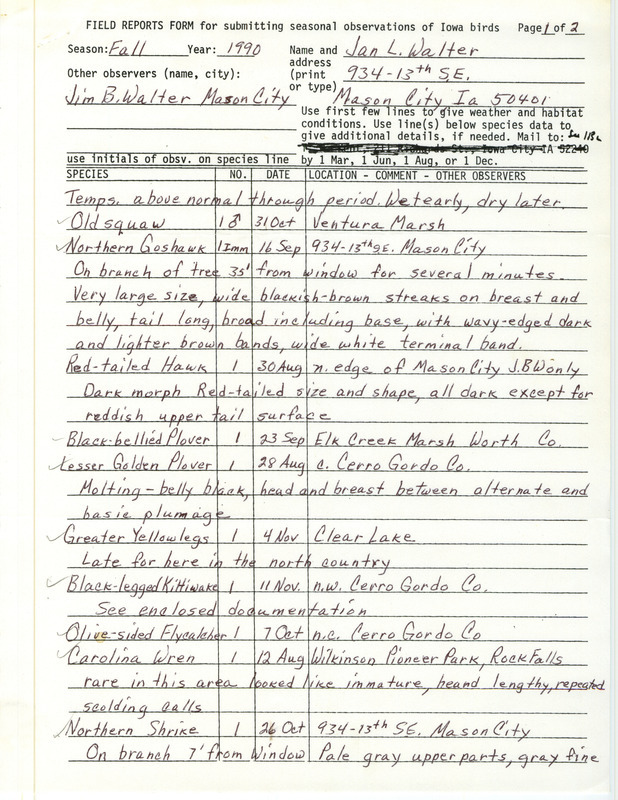 FIELD REPORTS FORM for submitting seasonal observations of Iowa birds Page 1 of 2
Season: Fall Year: 1990 Name and Jan L. Walter
address
Other observers (name, city): (print 934-13th S.E.
or type)
Jim B. Walter Mason City Mason City Ia 50401
Use first few lines to give weather and habitat
conditions. Use line(s) below species data to
give additional details, if needed. Mail to:
Iowa City IA 52240
use initials of obsv. on species line by 1 Mar, 1 Jun, 1 Aug, or 1 Dec.
SPECIES NO. DATE LOCATION - COMMENT - OTHER OBSERVERS
Temps. above normal through period. Wet early, dry later.
Oldsquaw 1♂ 31 Oct Ventura Marsh
Northern Goshawk 1 Imm 16 Sep 934-13th SE. Mason City
On branch of tree 35' from window for several minutes.
Very large size, wide blackish-brown streaks on breast and
belly, tail long, broad including base, with wavy-edged dark
and lighter brown bands, wide white terminal band.
Red-tailed Hawk 1 30 Aug n. edge of Mason City J.B.W only
Dark morph Red-tailed size and shape, all dark except for
reddish upper tail surface
Black-bellied Plover 1 23 Sep Elk Creek Marsh Worth Co.
Lesser Golden Plover 1 28 Aug c. Cerro Gordo Co.
Molting - belly black, head and breast between alternate and
basic plumage
Greater Yellowlegs 1 4 Nov Clear Lake
Late for here in the north country
Black-legged Kittiwake 1 11 Nov. n.w. Cerro Gordo Co.
See enclosed documentation
Olive-sided Flycatcher 1 7 Oct n.c. Cerro Gordo Co
Carolina Wren 1 12 Aug Wilkinson Pioneer Park, Rock Falls
rare in this area looked like immature, heand lengthy, repeated
scolding calls
Northern Shrike 1 26 Oct 934-13th SE. Mason City
On branch 7' from Window Pale gray upperparts, gray fine